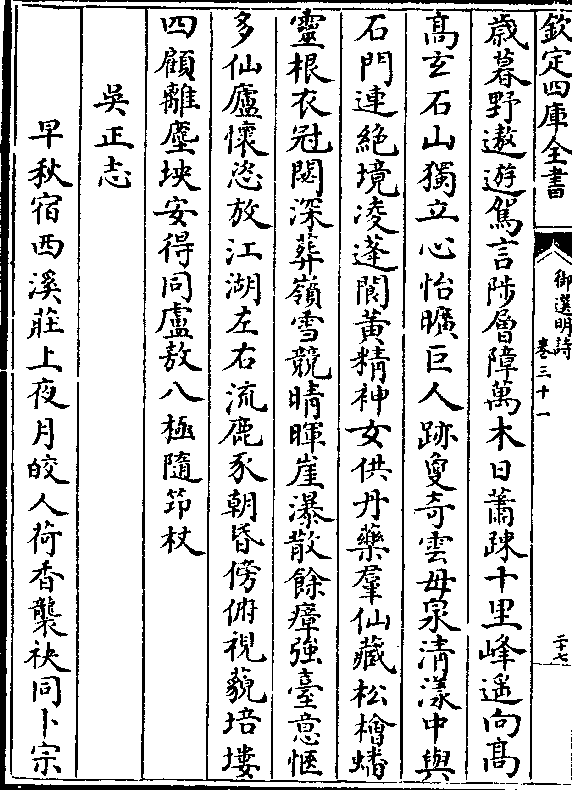 欽定四庫全書
御選明詩
卷三十一
二十七
歳暮野遨遊駕言陟層障萬木日蕭踈十里峰遥向髙
髙玄石山獨立心怡曠巨人跡夐奇雲母泉清漾中與
石門連絶境凌蓬閬黄精神女供丹藥羣仙藏松檜蟠
靈根衣冠閟深葬嶺雪競晴暉崖瀑散餘瘴強臺意愜
多仙廬懷恣放江湖左右流鹿豕朝昏傍俯視藐培塿
四顧離塵坱安得同盧敖八極隨笻杖
吳正志
早秋宿西溪莊上夜月皎人荷香襲袂同卜宗